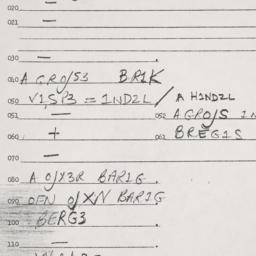 020 —
021 —
030 —
040 A GRO/S3 BR1K
050 V1SP3 = 1NDZL / A H1NDZL
051 — 052 A GRO/S 1N
060 + 061 BREG1S
070 —
080 A O/X3R BAR1G
090 OFN O/XN BAR1G
100 BERG3
110 —